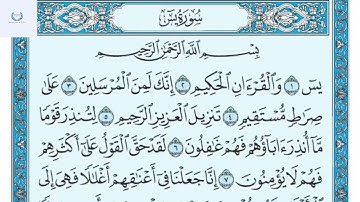 سُورَةُ يسٓ
بِسْمِ اللَّهِ الرَّحْمَٰنِ الرَّحِيمِ
يسٓ ١ وَالْقُرْءَانِ الْحَكِيمِ ٢ إِنَّكَ لَمِنَ الْمُرْسَلِينَ ٣ عَلَىٰ
صِرَاطٍ مُّسْتَقِيمٍ ٤ تَنزِيلَ الْعَزِيزِ الرَّحِيمِ ٥ لِتُنذِرَ قَوْمًا
مَّآ أُنذِرَ ءَابَآؤُهُمْ فَهُمْ غَٰفِلُونَ ٦ لَقَدْ حَقَّ الْقَوْلُ عَلَىٰٓ أَكْثَرِهِمْ
فَهُمْ لَا يُؤْمِنُونَ ٧ إِنَّا جَعَلْنَا فِىٓ أَعْنَٰقِهِمْ أَغْلَٰلًا فَهِىَ إِلَى